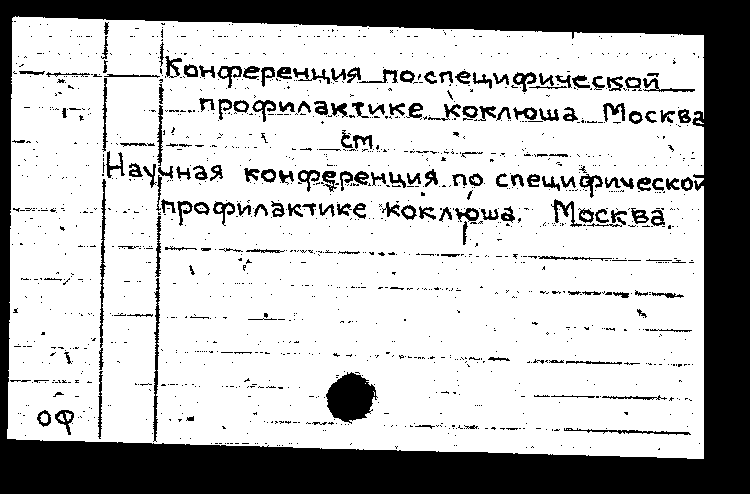 Конференция по специфической
профилактике коклюша Москва
см.
Научная конференция по специфической
профилактике коклюша. Москва.
ОФ